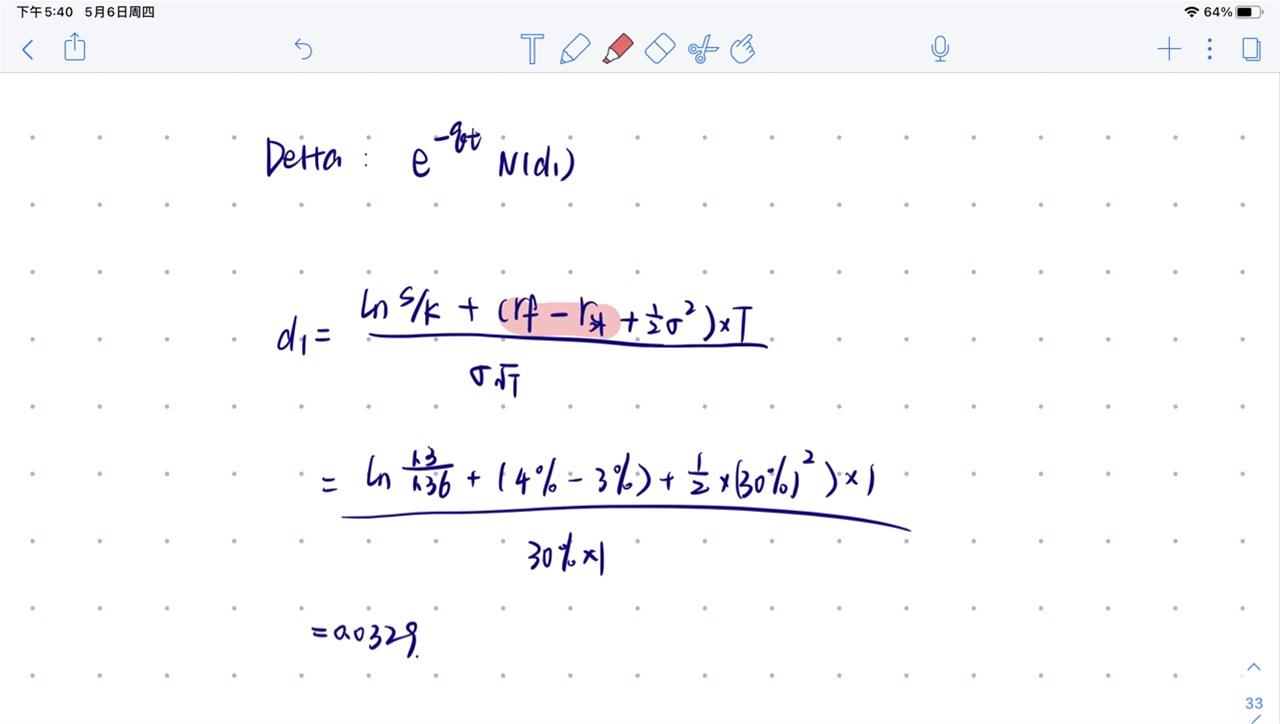 下午5:40 5月6日周四 64%
T
Delta : e^{-qt} N(d₁)
ln S/K + (rf - r外 + ½σ²)×T
d₁ =
σ√T
= ln 1.3/1.36 + (4% - 3%) + ½×(30%)²)×1
30%×1
= 0.0329
33